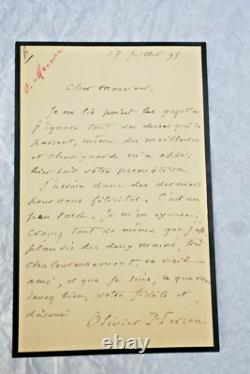 17 Juillet 95
Cher Monsieur,
Je ne lis point les gazettes
j'ignore tout des choses qui se
passent, même des meilleures
et Chavignard m'a appris
hier soir votre promotion.
J'arrive donc des derniers
pour vous féliciter. C'est un
peu tard. Je m'en excuse.
Croyez tout de même que j'ap-
plaudis des deux mains, très
chaleureusement, en vieil
ami, et que je suis, ce que vous
savez bien, votre fidèle et
dévoué
Olivier